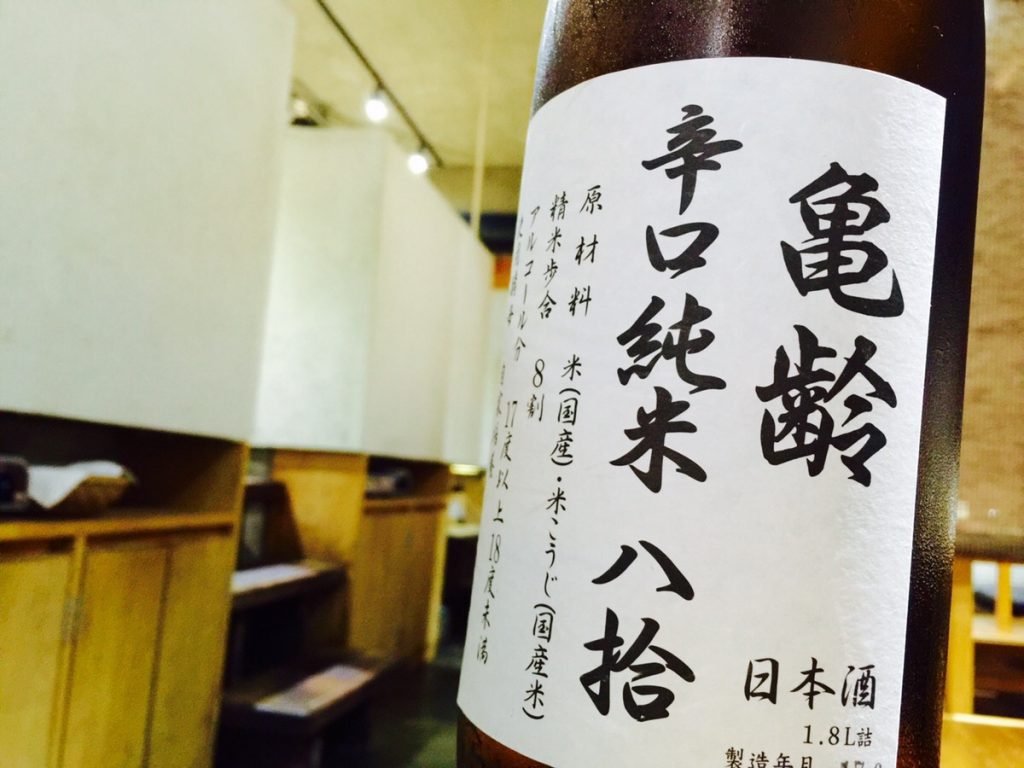 亀齢
辛口純米 八拾
原材料 米(国産)・米こうじ(国産米)
精米歩合 8割
アルコール分 17度以上18度未満
日本酒
1.8L詰
製造年月